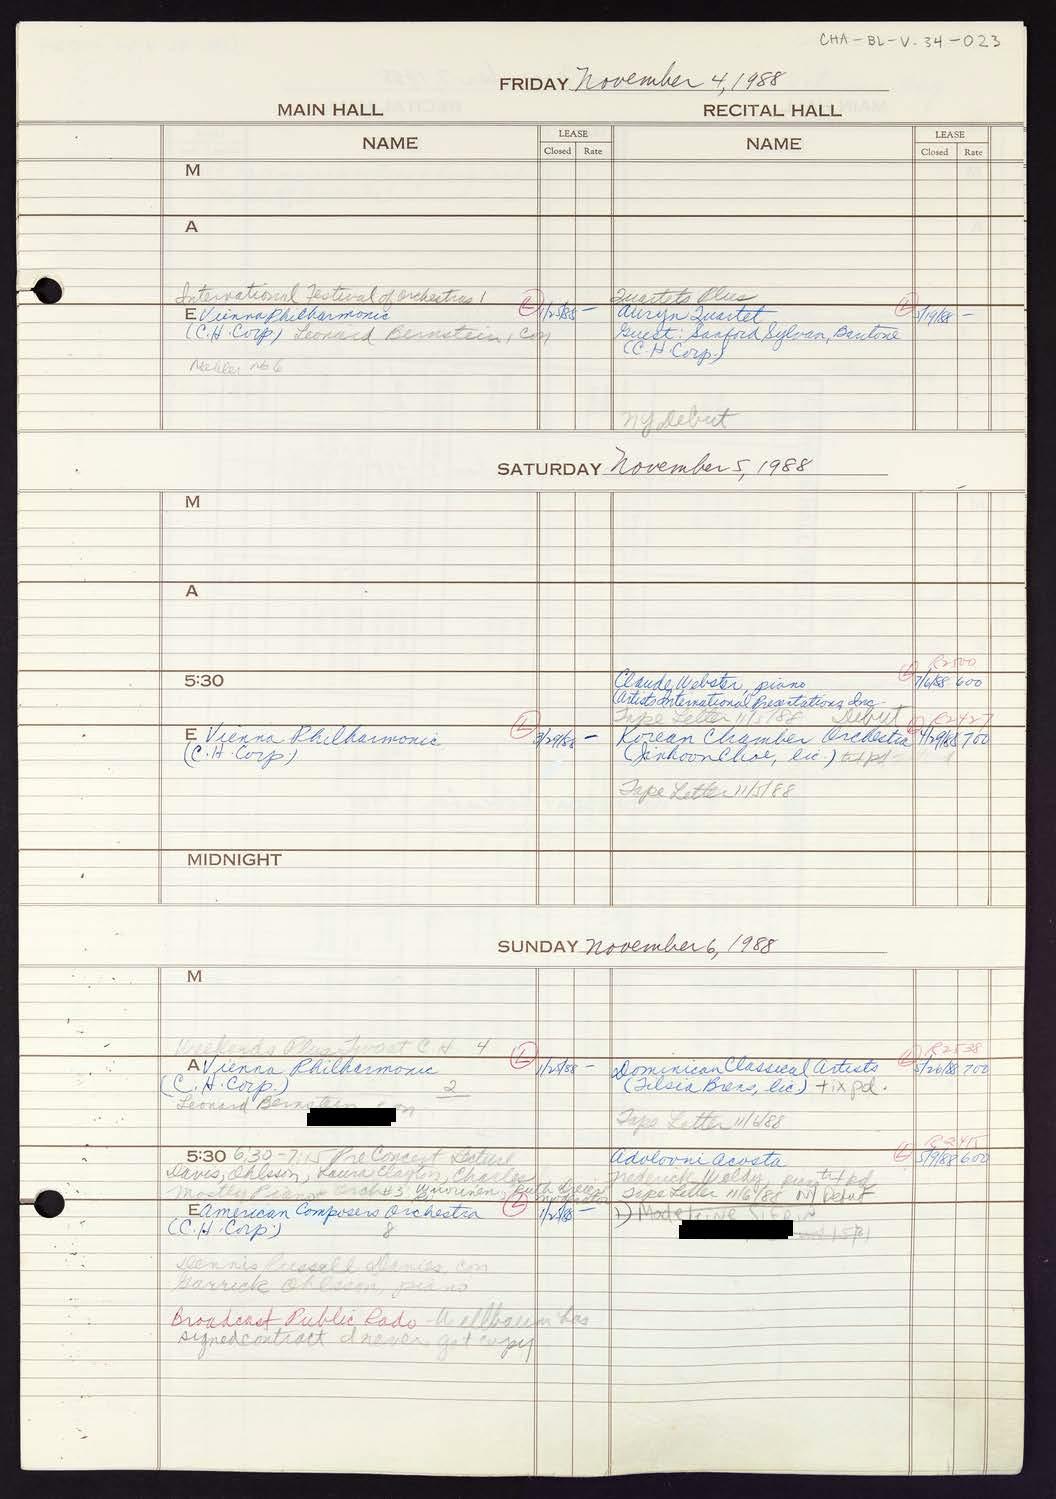 CHA-BL-V. 34-023
FRIDAY November 4, 1988
MAIN HALL
RECITAL HALL
NAME
LEASE
Closed Rate
NAME
LEASE
Closed Rate
M
A
International Festival of Orchestras 1
E Vienna Philharmonic L 1/25/88 -
(C.H. Corp) Leonard Bernstein, con
Mahler no 6
Quartets Plus
Auryn Quartet L 5/19/88 -
Guest: Sanford Sylvan, Baritone
(C.H. Corp.)
NY Debut
SATURDAY November 5, 1988
M
A
5:30
R2500
Claude Webster, piano L 7/6/88 600
(Artists International Presentations, Inc.
Tape Letter 11/5/88 Debut
E Vienna Philharmonic L 3/29/88 -
(C.H. Corp)
R2427
Korean Chamber Orchestra L 4/29/88 700
(Jinhoon Choe, lic.) tx pd
Tape Letter 11/5/88
MIDNIGHT
SUNDAY November 6, 1988
M
Weekends Plus Two at C.H. 4
A Vienna Philharmonic L 1/25/88 -
(C.H. Corp.) 2
Leonard Bernstein, con
R2538
Dominican Classical Artists L 5/26/88 700
(Tilsia Brens, lic.) tix pd.
Tape Letter 11/6/88
5:30 6:30-7:15 Pre Concert Lecture
Davis, Ohlsson, Laura Clayton, Charles
Mostly Piano Orch #3 Wuorinen, Ruth Dreier
moderator
E American Composers Orchestra L 1/25/88 -
(C.H. Corp) 8
Dennis Russell Davies, con
Garrick Ohlsson, piano
Broadcast Public Radio - Wellbaum has
signed contract & never got copy
Adolovni Acosta L 5/9/88 600
Frederick Moldy, tx pd
Tape Letter 11/6/88 NY Debut
1) Madeleine